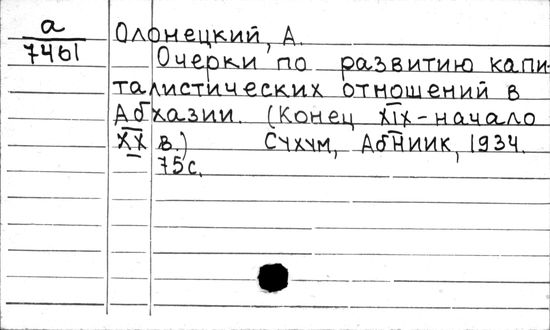 а
7461
Олонецкий, А.
Очерки по развитию капи-
талистических отношений в
Абхазии. (Конец XIX - начало
XX в.) Сухум, АбНИИК, 1934.
75с.